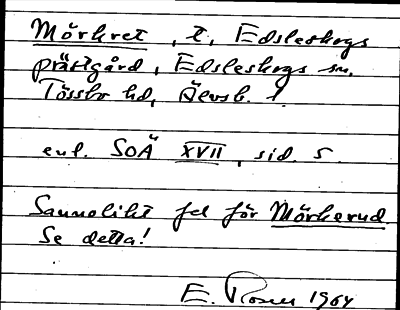 Mörkret, t., Edsleskogs
prästgård, Edsleskogs sn,
Tössbo hd, Älvsb. l.
enl. SOÄ XVII, sid. 5.
Sannolikt fel för Mörkerud.
Se detta!
E. Rosen 1964